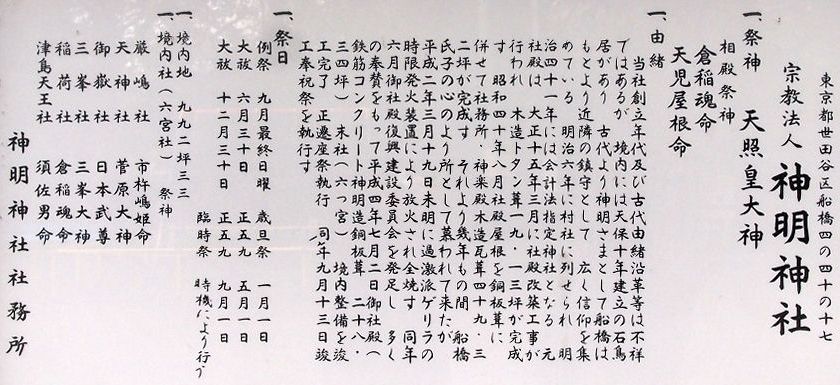 東京都世田谷区船橋四の四十の十七
宗教法人 神明神社
一、祭神 天照皇大神
相殿祭神
倉稲魂命
天児屋根命
一、由緒
当社創立年代及び古代由緒沿革等は不祥
ではあるが 境内には天保十年建立の石鳥
居があり 古代より神明さまとして船橋は
もとより近隣の鎮守として 広く信仰を集
めている 明治六年に村社に列せられ 明
治四十一年には会計法指定神社となる 元
社殿は 大正十五年三月に社殿改築工事が
行われ 木造トタン葺一九・一三坪が完成
す 昭和四十年八月社殿屋根を銅板葺に
併せて社務所、神楽殿木造瓦葺四十九・三
二坪が完成す それより幾年もの間 船橋
氏子の心のより所として慕われて来たが
平成二年三月十九日未明に過激派ゲリラの
時限発火装置により放火され全焼す 同年
六月御社殿復興建設委員会を発足し 多く
の奉賛をもって平成四年七月二日御社殿(
鉄筋コンクリート神明造銅板葺 二十八・
三四坪) 末社(六つ宮) 境内整備を竣
工完了 正遷座祭執行 同年九月十三日竣
工奉祝祭を執行す
一、祭日
例祭 九月最終日曜 歳旦祭 一月一日
大祓 六月三十日 正五九 五月一日
大祓 十二月三十日 正五九 九月一日
臨時祭 時機により行う
一、境内地 九九二坪三三
一、境内社(六宮社) 祭神
厳嶋社 市杵嶋姫命
天神社 菅原大神
御嶽社 日本武尊
三峯社 三峯大神
稲荷社 倉稲魂命
津島天王社 須佐男命
神明神社社務所